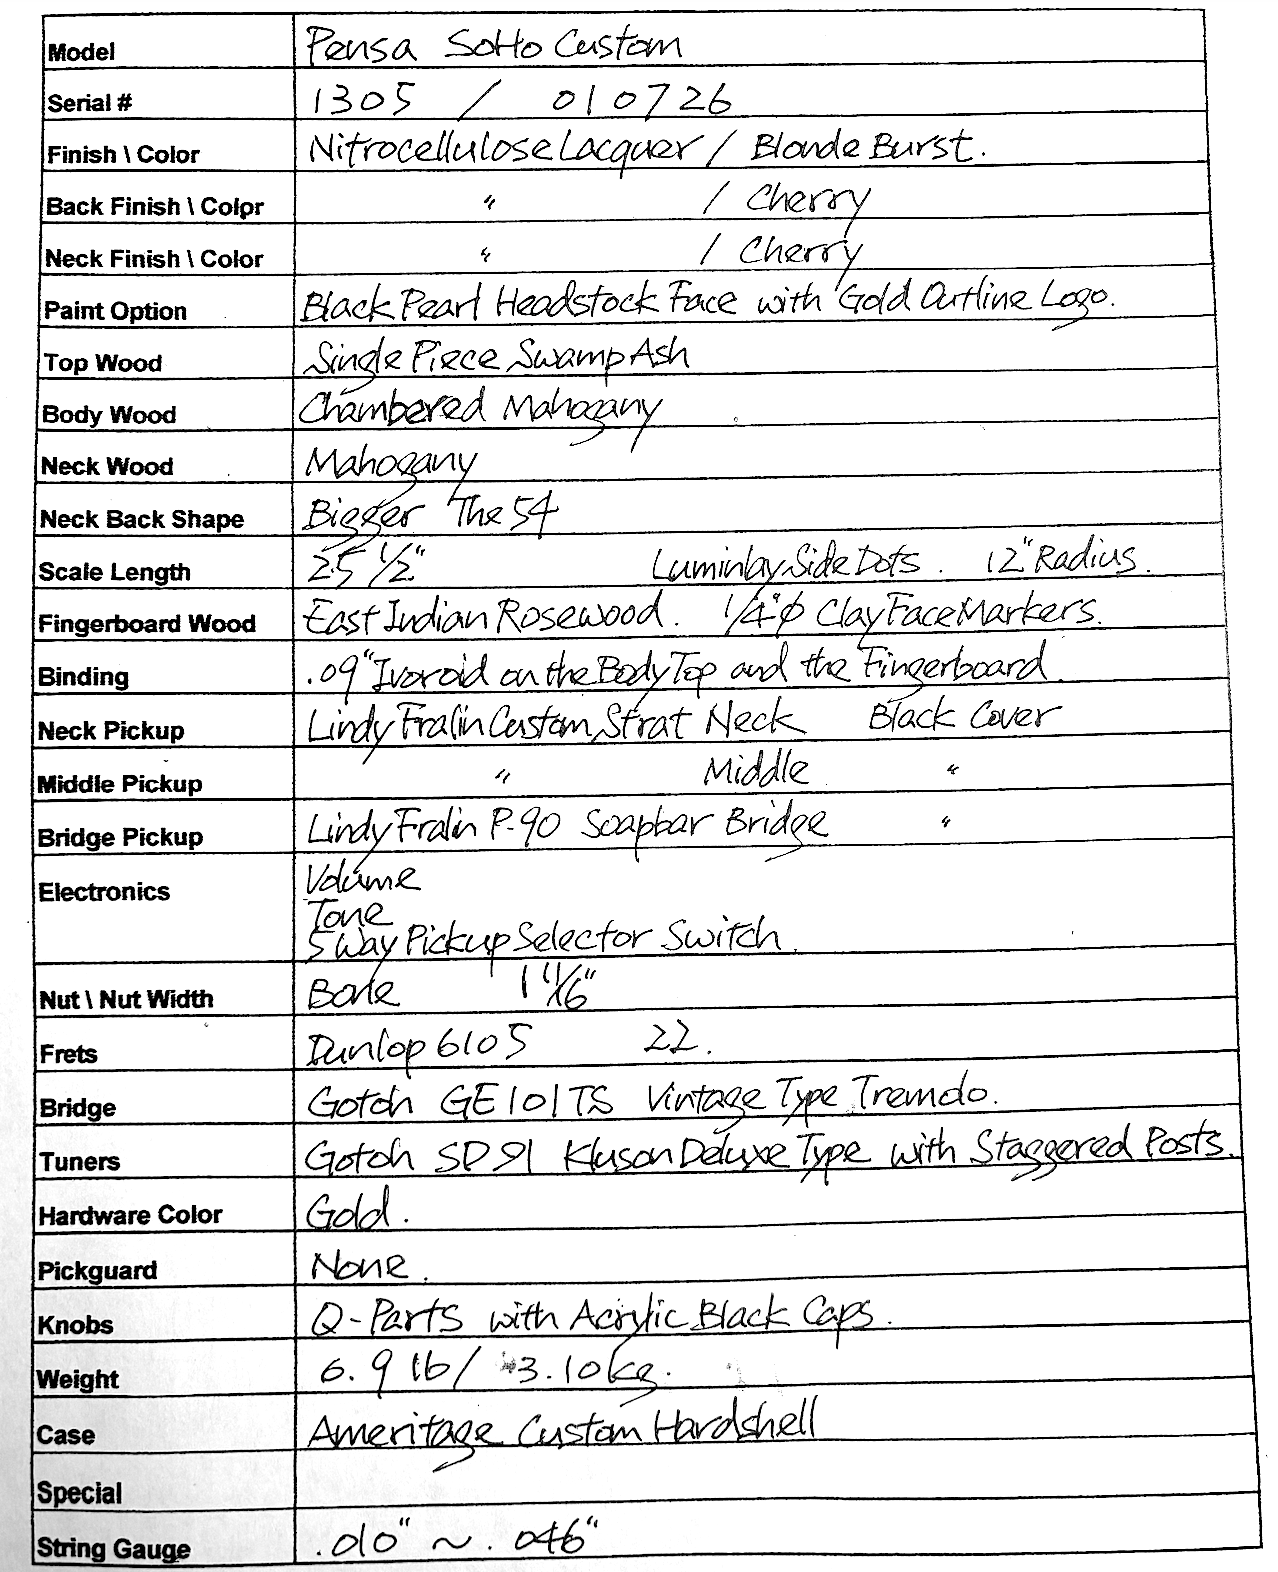 Model Pensa SoHo Custom
Serial # 1305 / 010726
Finish \ Color Nitrocellulose Lacquer / Blonde Burst.
Back Finish \ Color " / Cherry
Neck Finish \ Color " / Cherry
Paint Option Black Pearl Headstock Face with Gold Outline Logo.
Top Wood Single Piece Swamp Ash
Body Wood Chambered Mahogany
Neck Wood Mahogany
Neck Back Shape Bigger The 54
Scale Length 25 1/2" Luminlay Side Dots. 12" Radius.
Fingerboard Wood East Indian Rosewood. 1/4"φ Clay Face Markers.
Binding .09" Ivoroid on the Body Top and the Fingerboard
Neck Pickup Lindy Fralin Custom Strat Neck Black Cover
Middle Pickup " Middle "
Bridge Pickup Lindy Fralin P-90 Soapbar Bridge "
Electronics Volume
Tone
5 Way Pickup Selector Switch.
Nut \ Nut Width Bone 1 11/16"
Frets Dunlop 6105 22.
Bridge Gotoh GE101TS Vintage Type Tremolo.
Tuners Gotoh SD91 Kluson Deluxe Type with Staggered Posts.
Hardware Color Gold.
Pickguard None.
Knobs Q-Parts with Acrylic Black Caps.
Weight 6.9 lb / 3.10 kg.
Case Ameritage Custom Hardshell
Special
String Gauge .010" ~ .046"